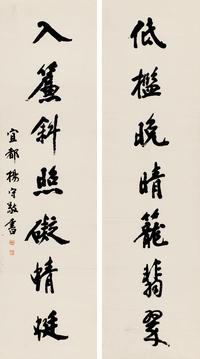 低檻晚晴籠翡翠
入簾斜照礙蜻蜓
宜都楊守敬書